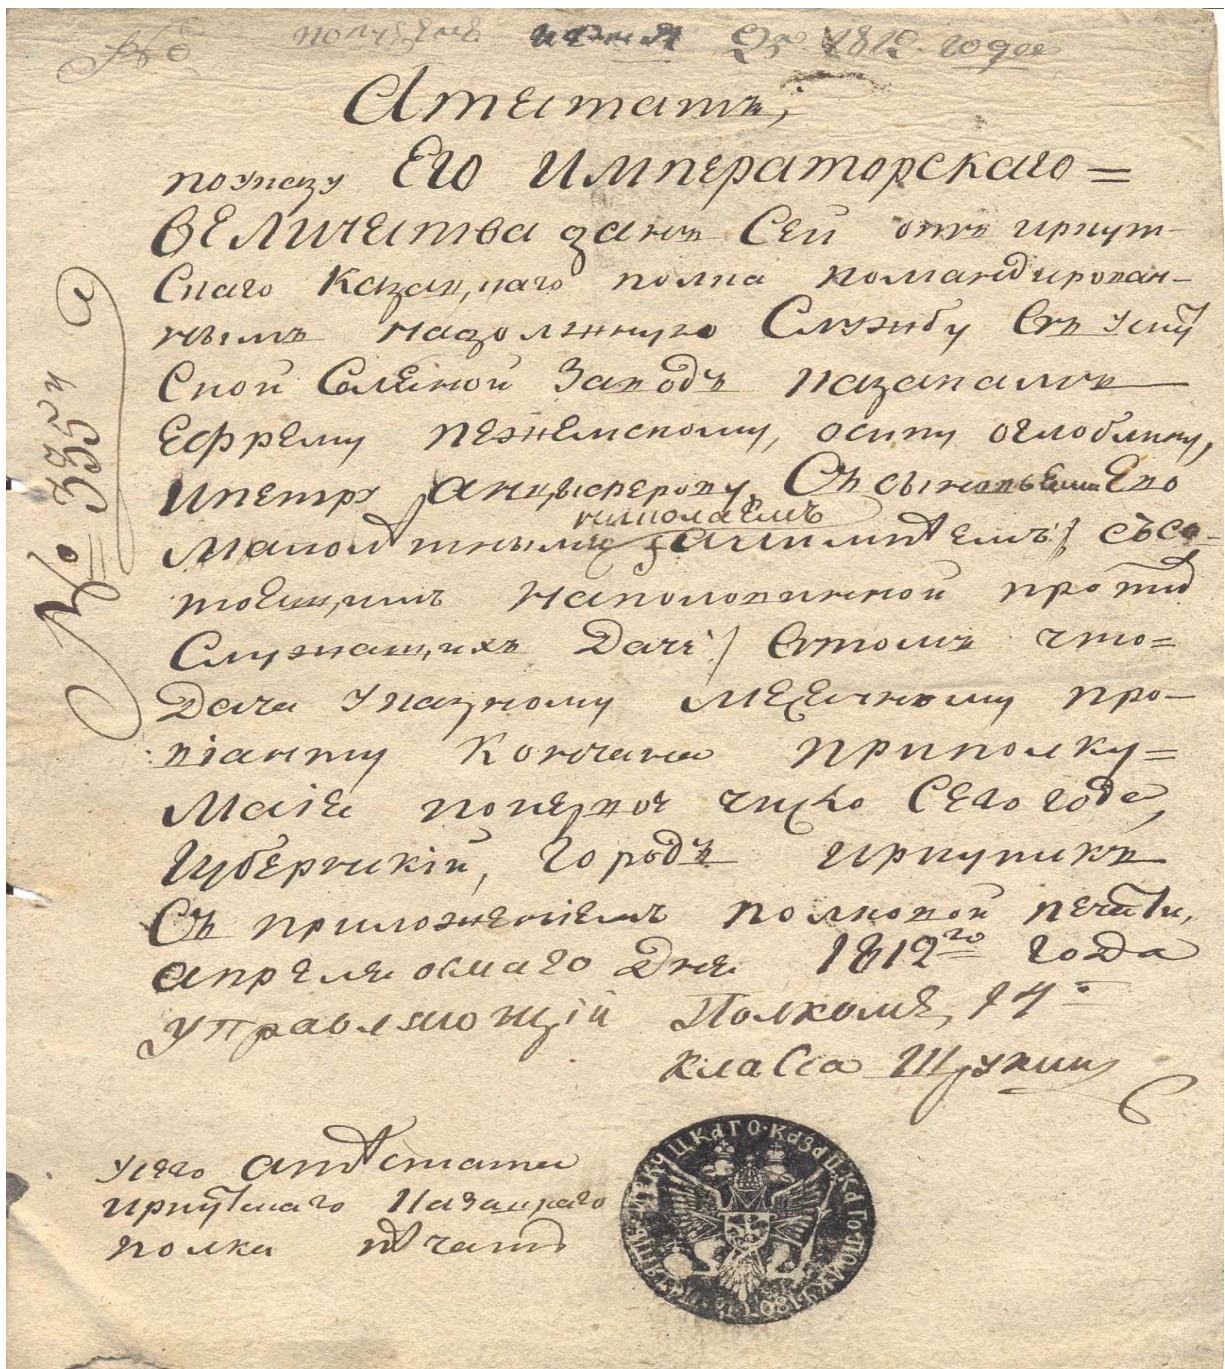 получено 1812 года
Атестатъ,
поуказу ЕГО ИМПЕРАТОРСКАГО =
ВЕЛИЧЕСТВА данъ Сей отъ иркут-
Скаго Казац,каго полка командирован-
нымъ надолжную Службу Въ Уску
Ской Соленой Заводъ казакамъ
Ефрему пежемскому, осипу оглоблину,
ипетру анцыферову, Съ сыномъ Ево
николаемъ
Малолѣтнымъ Съсо-
тоящимъ наполовинной проти
Служащихъ Даче / Втомъ что =
Дача Указному Месечному про-
віанту Кончена приполку =
Маія поперьвое число Сего года,
Губернскій, городъ иркутскъ
Съ приложеніемъ полковой печати,
апреля осмаго Дня 1812го года
Управляющій Полкомъ, 14
класса Щукин
№ 335
Усего атѣстата
иркутскаго Казацкаго
полка пѣчать
ИРКУЦКАГО КАЗАЦКАГО ПОЛКУ